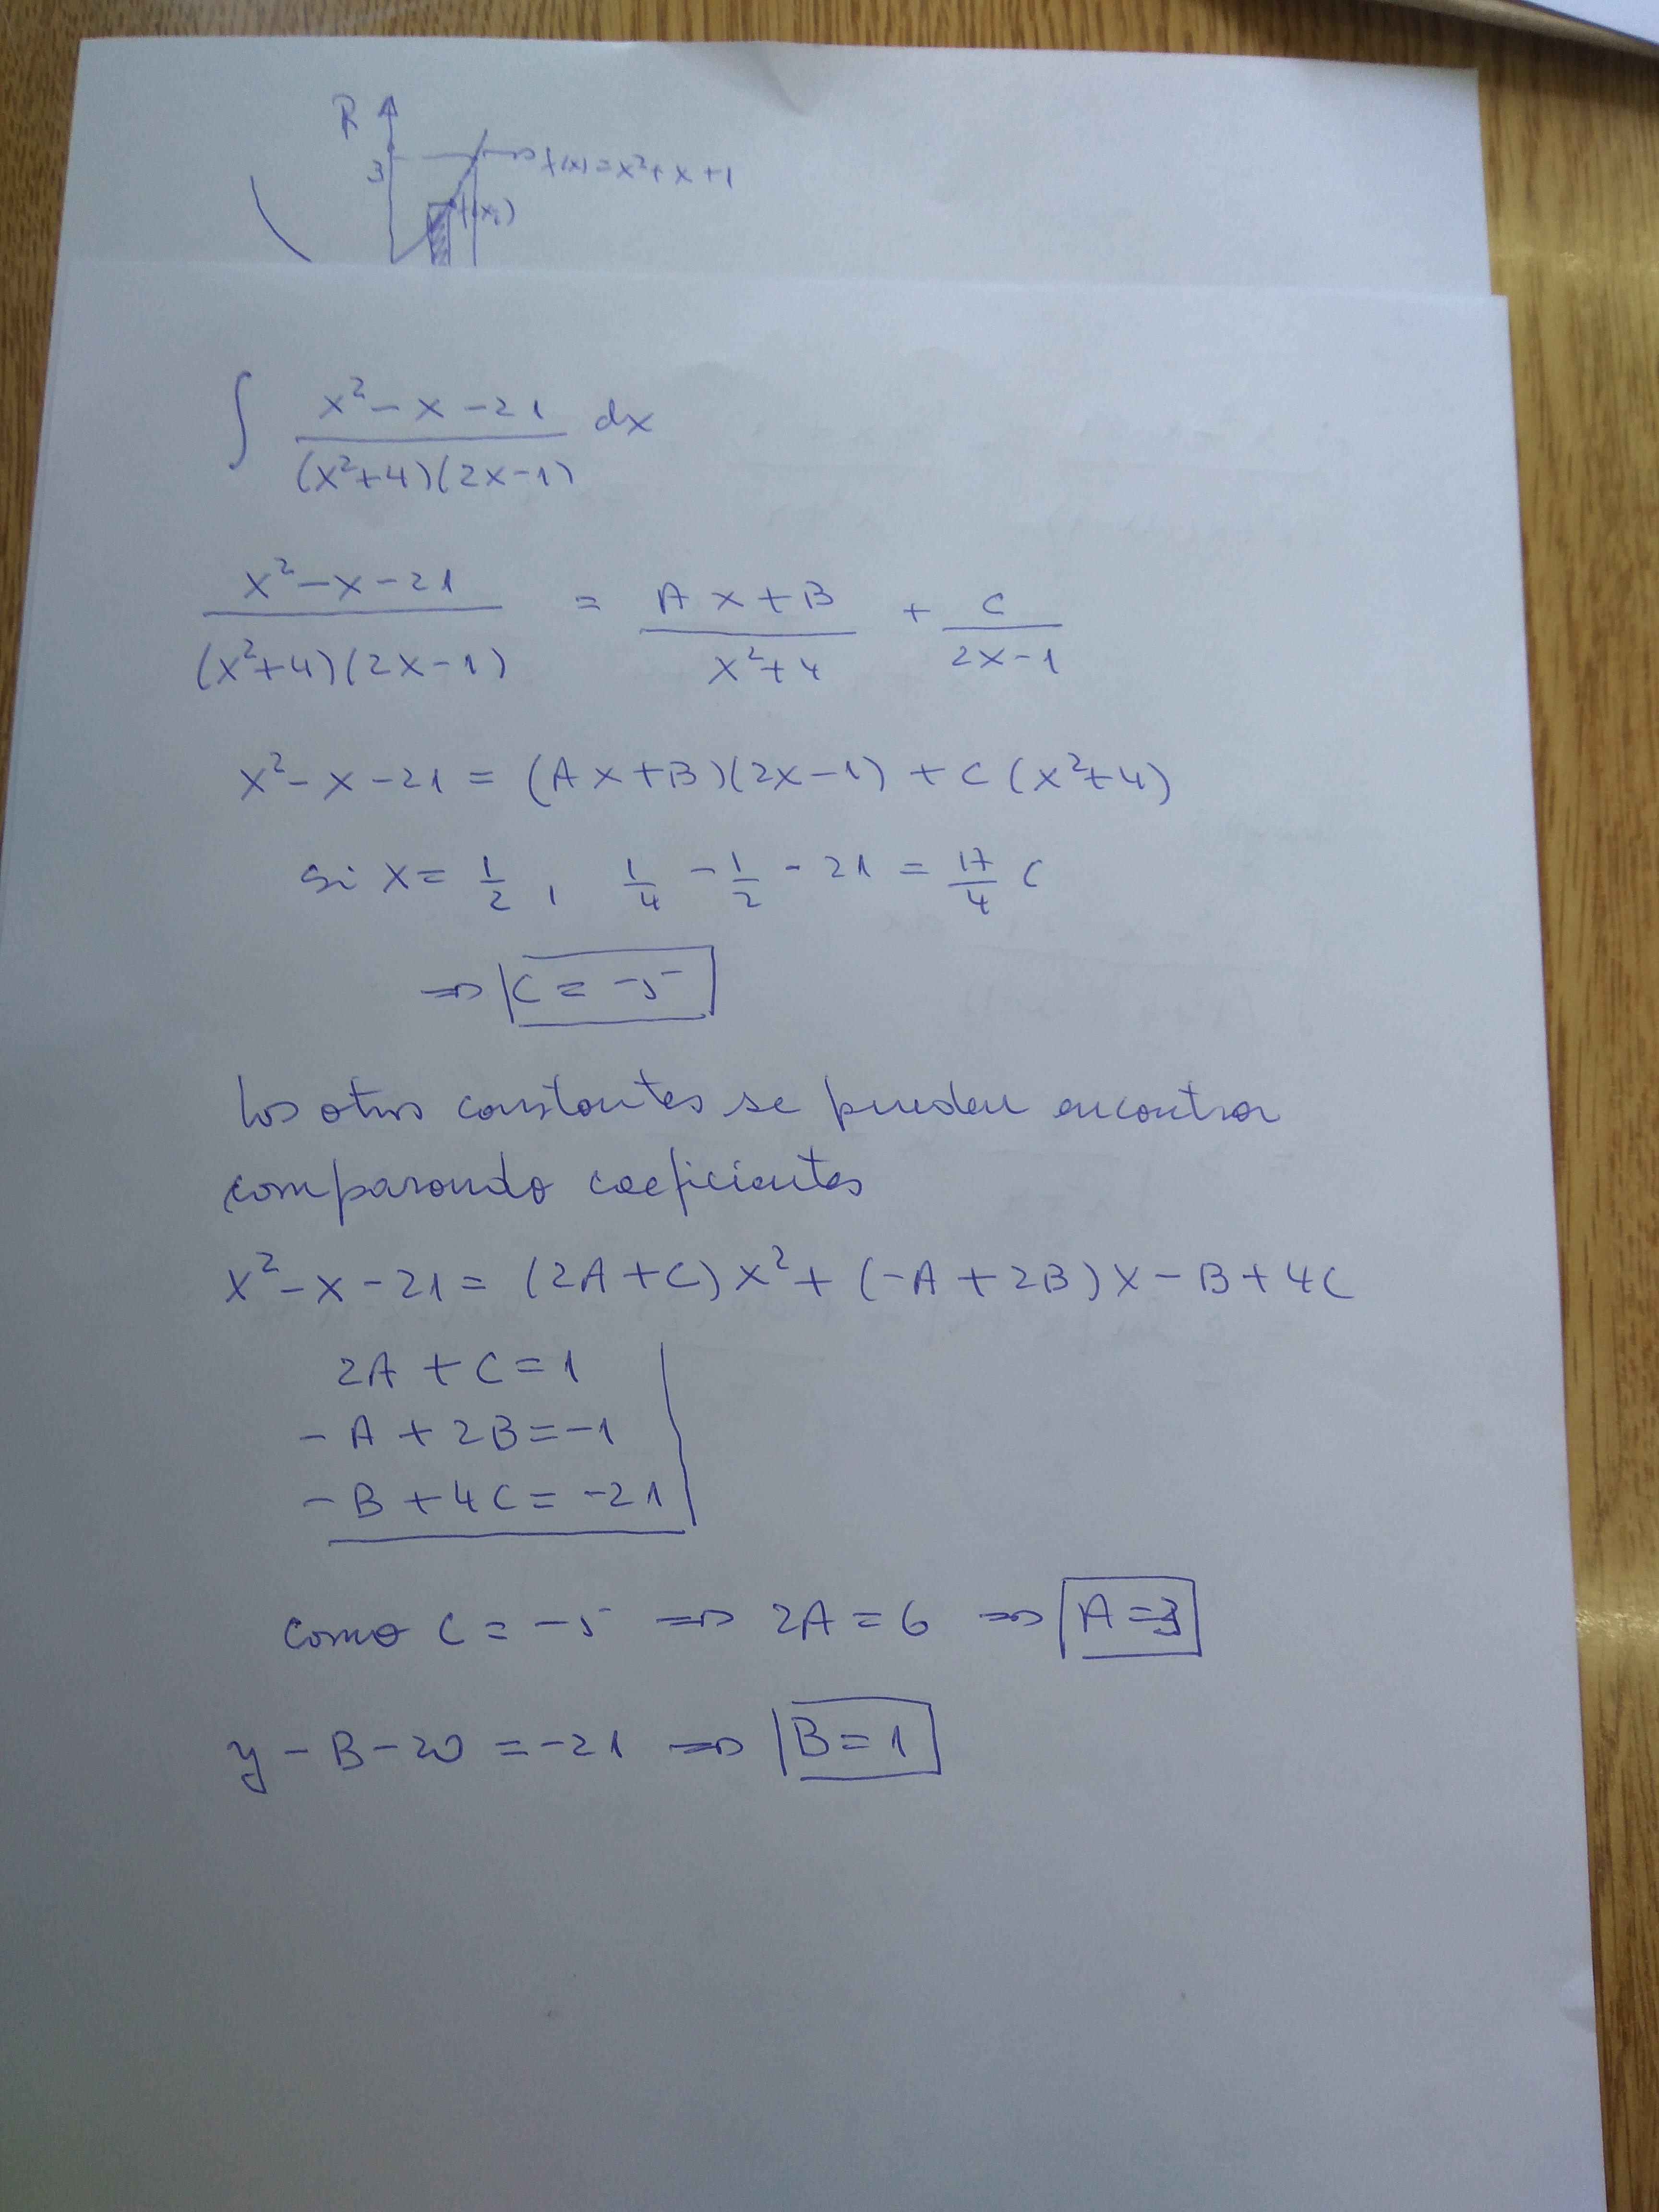 R
3
f(x) = x² + x + 1
f(x₂)
∫ x² - x - 21 / (x² + 4)(2x - 1) dx
x² - x - 21 / (x² + 4)(2x - 1) = Ax + B / x² + 4 + C / 2x - 1
x² - x - 21 = (Ax + B)(2x - 1) + C(x² + 4)
si x = 1/2, 1/4 - 1/2 - 21 = 17/4 C
⇒ C = -5
Las otras constantes se pueden encontrar
comparando coeficientes
x² - x - 21 = (2A + C)x² + (-A + 2B)x - B + 4C
2A + C = 1
-A + 2B = -1
-B + 4C = -21
como C = -5 ⇒ 2A = 6 ⇒ A = 3
y -B - 20 = -21 ⇒ B = 1